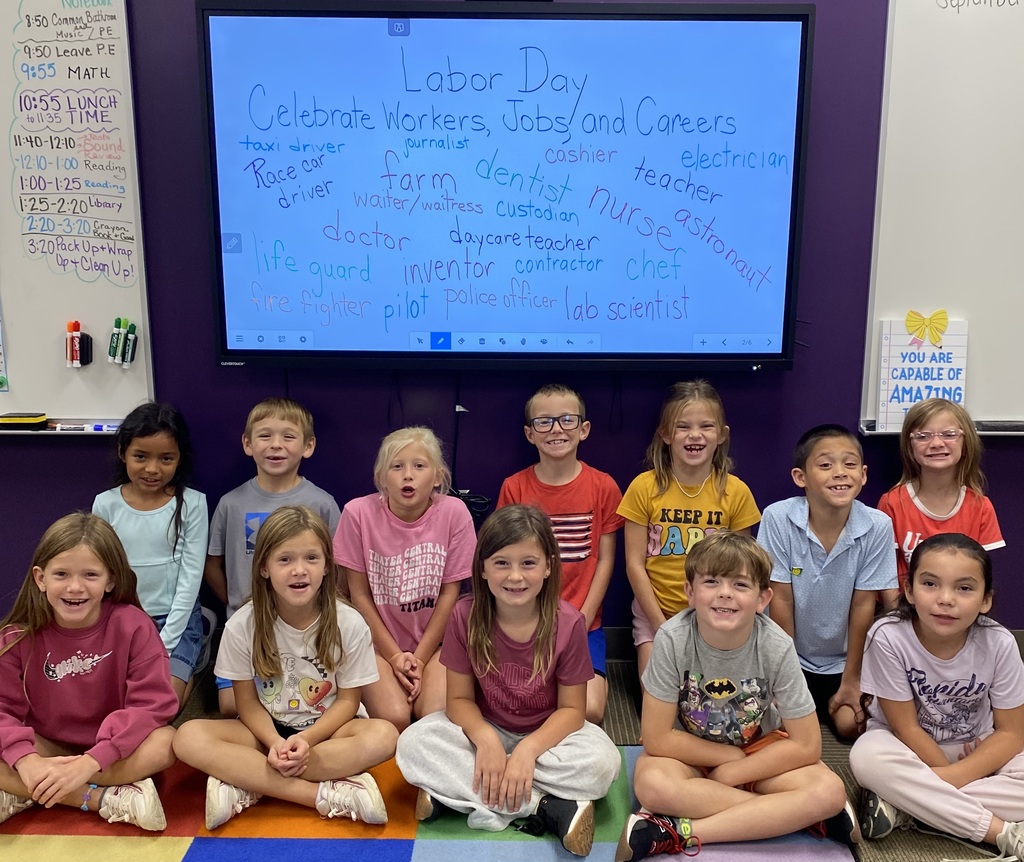 Notebook
8:50 Common Bathroom
and
Music / PE
9:50 Leave P.E
9:55 MATH
10:55 LUNCH
to 11:35 TIME
11:40-12:10 Sound
Review
12:10-1:00 Reading
1:00-1:25 Reading
1:25-2:20 Library
2:20-3:20 Crayon
Book + Goal
3:20 Pack Up + Wrap
Up + Clean Up!
Labor Day
Celebrate Workers, Jobs, and Careers
taxi driver journalist cashier electrician
Race car driver farm dentist teacher
waiter/waitress custodian nurse astronaut
doctor daycare teacher
life guard inventor contractor chef
fire fighter pilot police officer lab scientist
2/6
CLEVERTOUCH
September
YOU ARE
CAPABLE OF
AMAZING
THAYER CENTRAL
THAYER CENTRAL
THAYER CENTRAL
THAYER CENTRAL
THAYER CENTRAL
TITANS
KEEP IT
HAPPY
Nike
Rapid